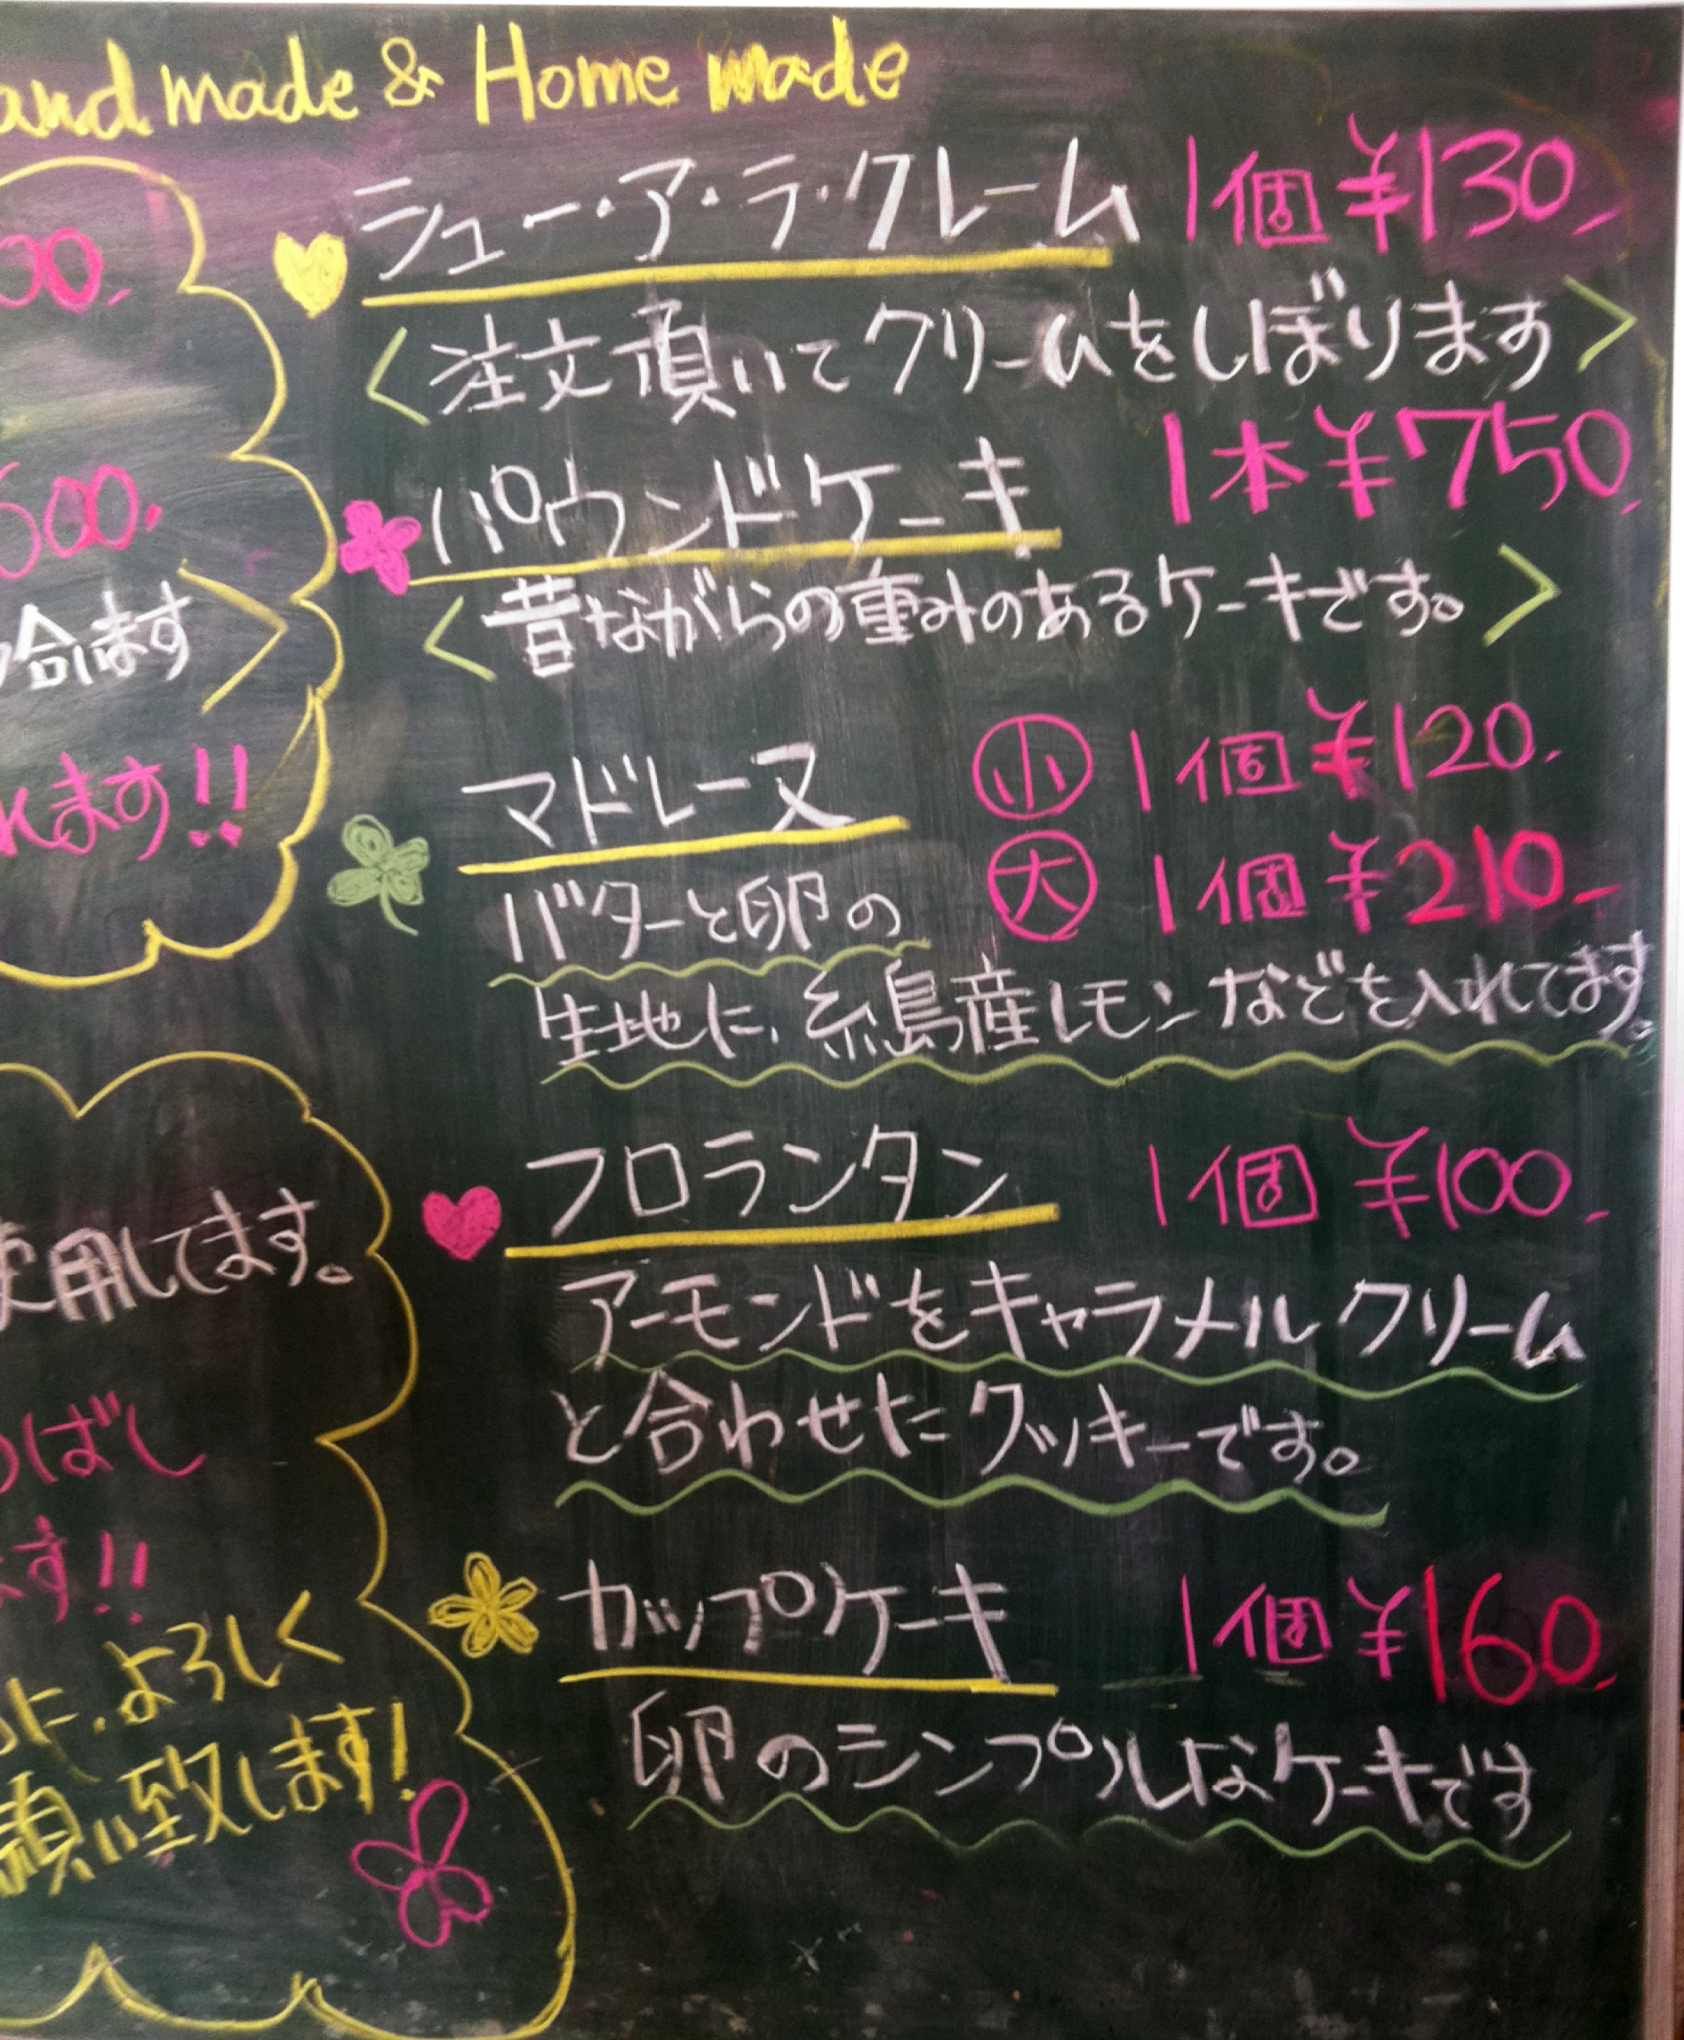 and made & Home made
シュー・ア・ラ・クレーム 1個 ¥130.-
<注文頂いてクリームをしぼります>
パウンドケーキ 1本 ¥750.
<昔ながらの重みのあるケーキです。>
マドレーヌ 小 1個 ¥120.-
大 1個 ¥210.-
バターと卵の
生地に、糸島産レモンなどを入れてます。
フロランタン 1個 ¥100.-
アーモンドをキャラメルクリーム
と合わせたクッキーです。
カップケーキ 1個 ¥160.
卵のシンプルなケーキです
00.-
600.
合します>
れます!!
使用してます。
ばし
ます!!
に、よろしく
願い致します!